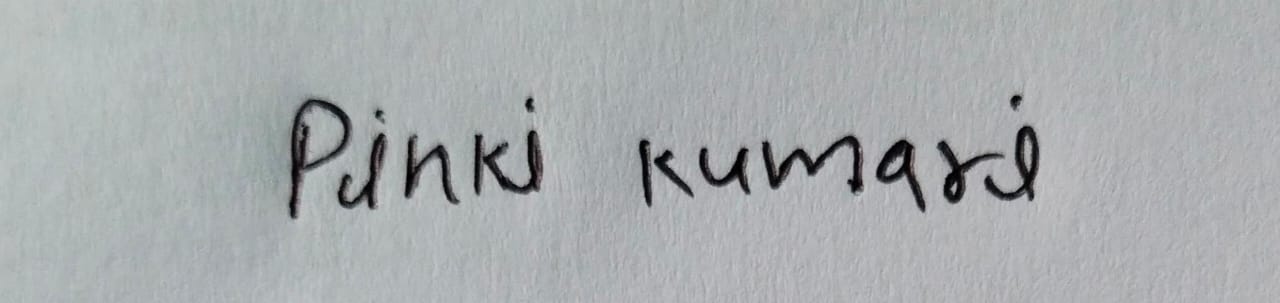 Pinki kumari